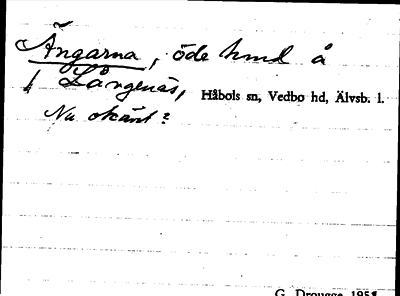 Ängarna, öde hmd å
f Långenäs,
Håbols sn, Vedbo hd, Älvsb. l.
Nu okänt?
G. Drougge 1951